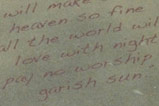 will make
heaven so fine
all the world will
love with night
pay no worship
garish sun"